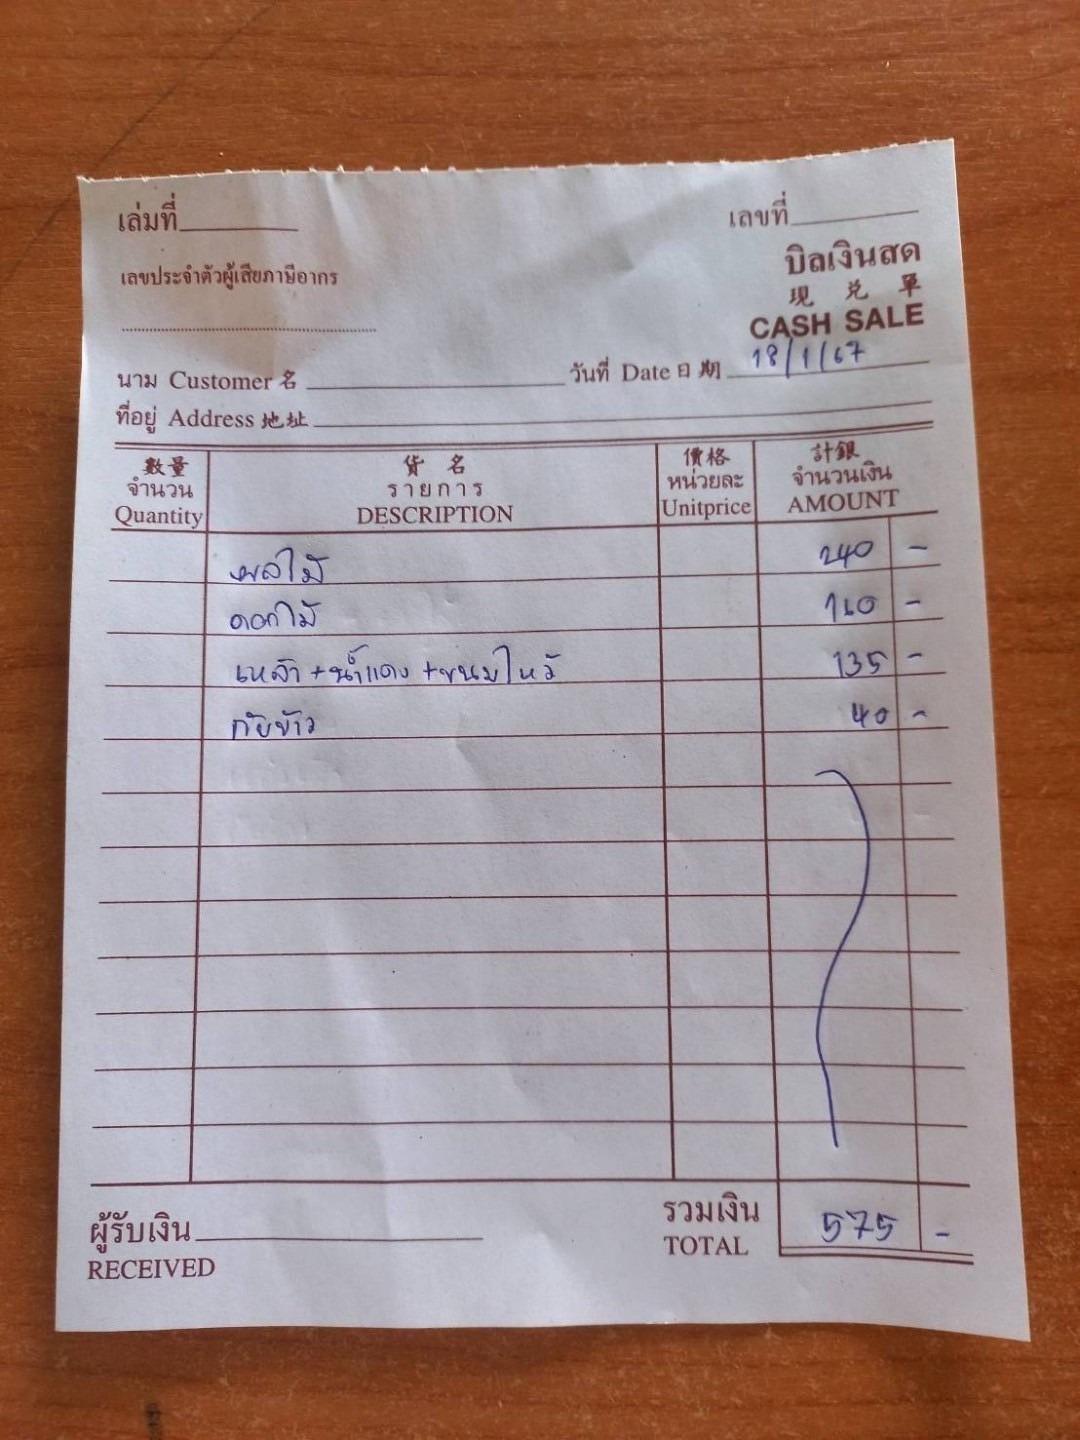 เล่มที่
เลขที่
เลขประจำตัวผู้เสียภาษีอากร
บิลเงินสด
現 兌 單
CASH SALE
นาม Customer 名
วันที่ Date 日期 18/1/67
ที่อยู่ Address 地址
數量 貨名 價格 計銀
จำนวน รายการ หน่วยละ จำนวนเงิน
Quantity DESCRIPTION Unitprice AMOUNT
ผลไม้ 240 -
ดอกไม้ 160 -
เหล้า+น้ำแดง+ขนมไหว้ 135 -
กับข้าว 40 -
ผู้รับเงิน
RECEIVED
รวมเงิน
TOTAL
575 -